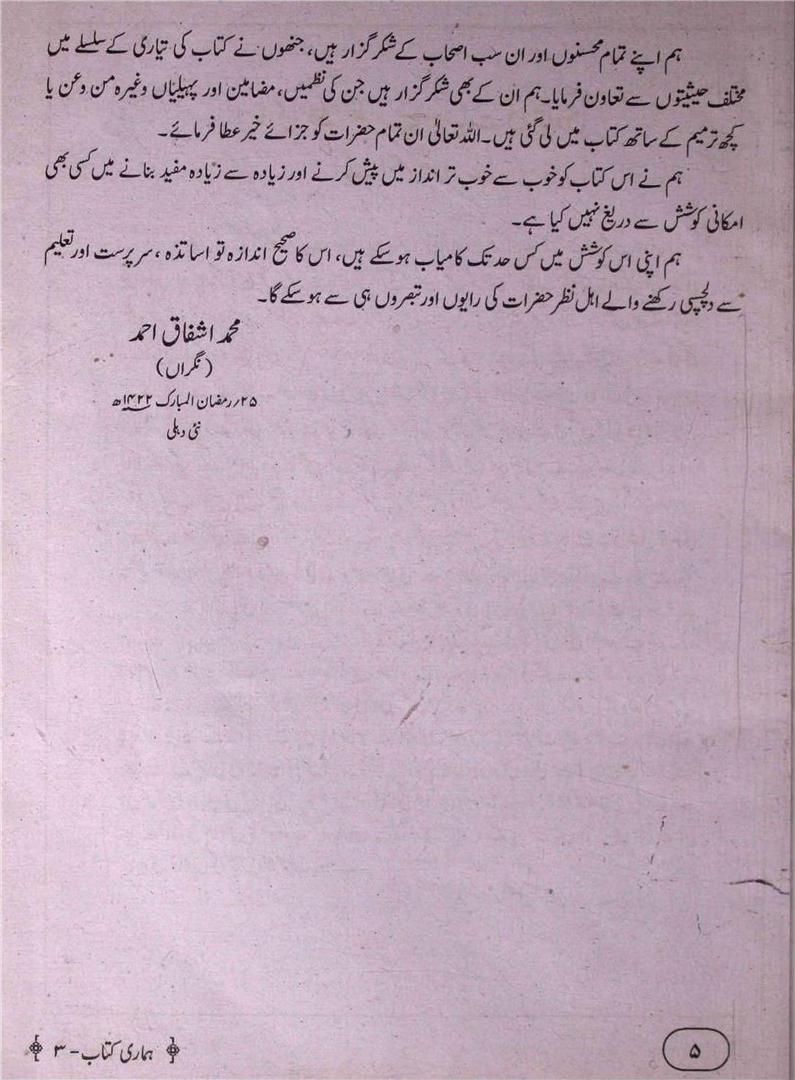 ہم اپنے تمام محسنوں اور ان سب اصحاب کے شکر گزار ہیں، جنھوں نے کتاب کی تیاری کے سلسلے میں
مختلف حیثیتوں سے تعاون فرمایا۔ ہم ان کے بھی شکر گزار ہیں جن کی نظمیں، مضامین اور پہیلیاں وغیرہ من و عن یا
کچھ ترمیم کے ساتھ کتاب میں لی گئی ہیں۔ اللہ تعالیٰ ان تمام حضرات کو جزائے خیر عطا فرمائے۔
ہم نے اس کتاب کو خوب سے خوب تر انداز میں پیش کرنے اور زیادہ سے زیادہ مفید بنانے میں کسی بھی
امکانی کوشش سے دریغ نہیں کیا ہے۔
ہم اپنی اس کوشش میں کس حد تک کامیاب ہو سکے ہیں، اس کا صحیح اندازہ تو اساتذہ، سرپرست اور تعلیم
سے دلچسپی رکھنے والے اہل نظر حضرات کی رایوں اور تبصروں ہی سے ہو سکے گا۔
محمد اشفاق احمد
(نگراں)
۲۵؍رمضان المبارک ۱۴۲۲ھ
نئی دہلی
۵
ہماری کتاب - ۳